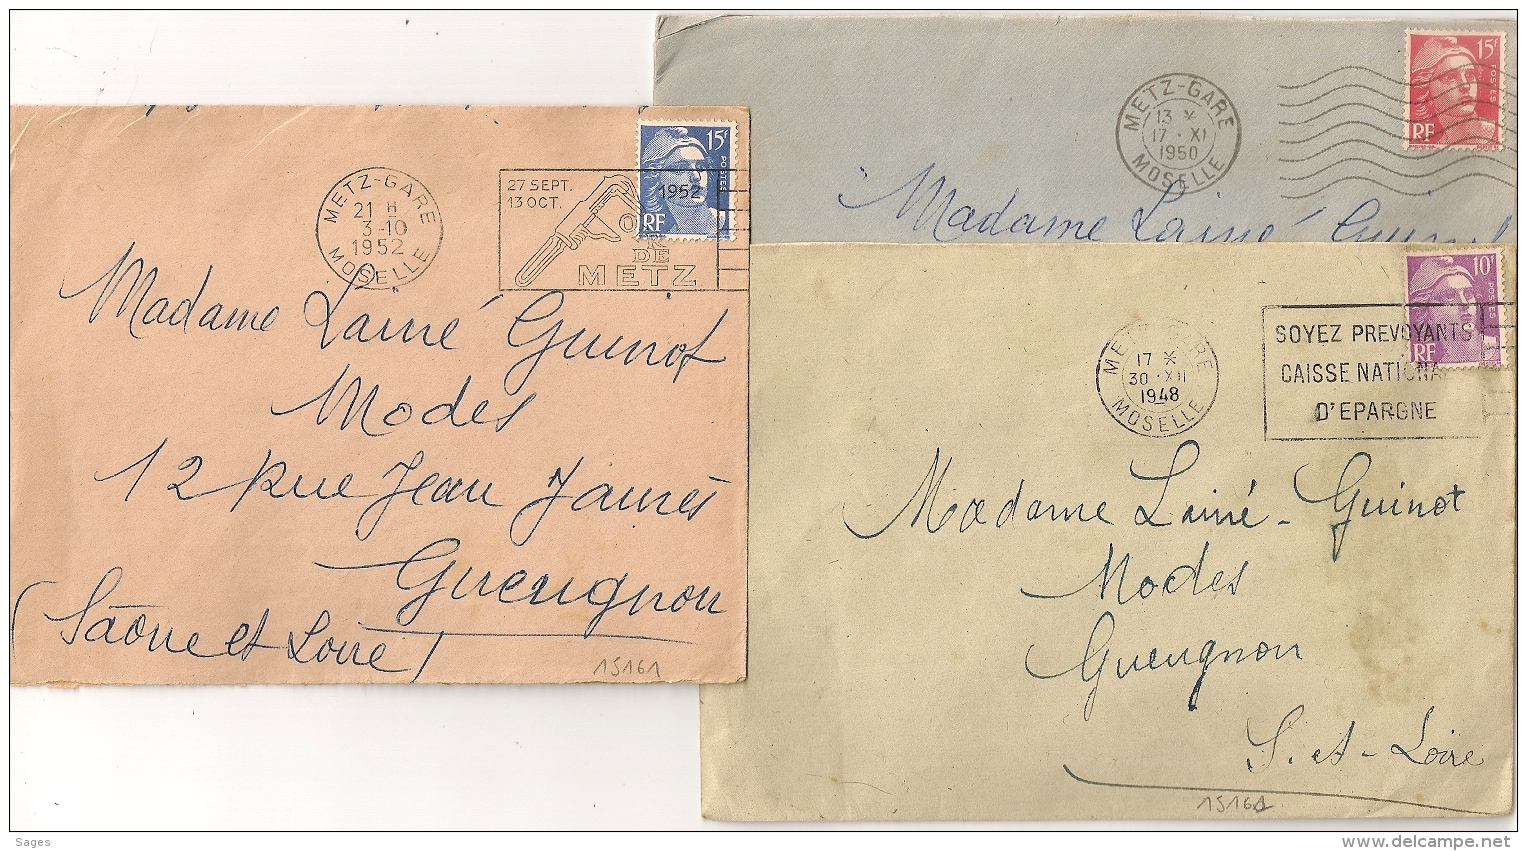 15f
POSTES
RF
METZ-GARE
21 H
3-10
1952
MOSELLE
27 SEPT.
13 OCT.
1952
DE
METZ
Madame Lainé Guinot
Modes
12 Rue Jean Jaurès
Gueugnon
(Saône et Loire)
15161
15f
POSTES
RF
METZ-GARE
13 *
17 · XI
1950
MOSELLE
Madame Lainé Guinot
10f
POSTES
RF
METZ-GARE
17 *
30 · XII
1948
MOSELLE
SOYEZ PREVOYANTS
CAISSE NATIONA
D'EPARGNE
Madame Lainé-Guinot
Modes
Gueugnon
S. et-Loire
15161
Sages
www.delcampe.net